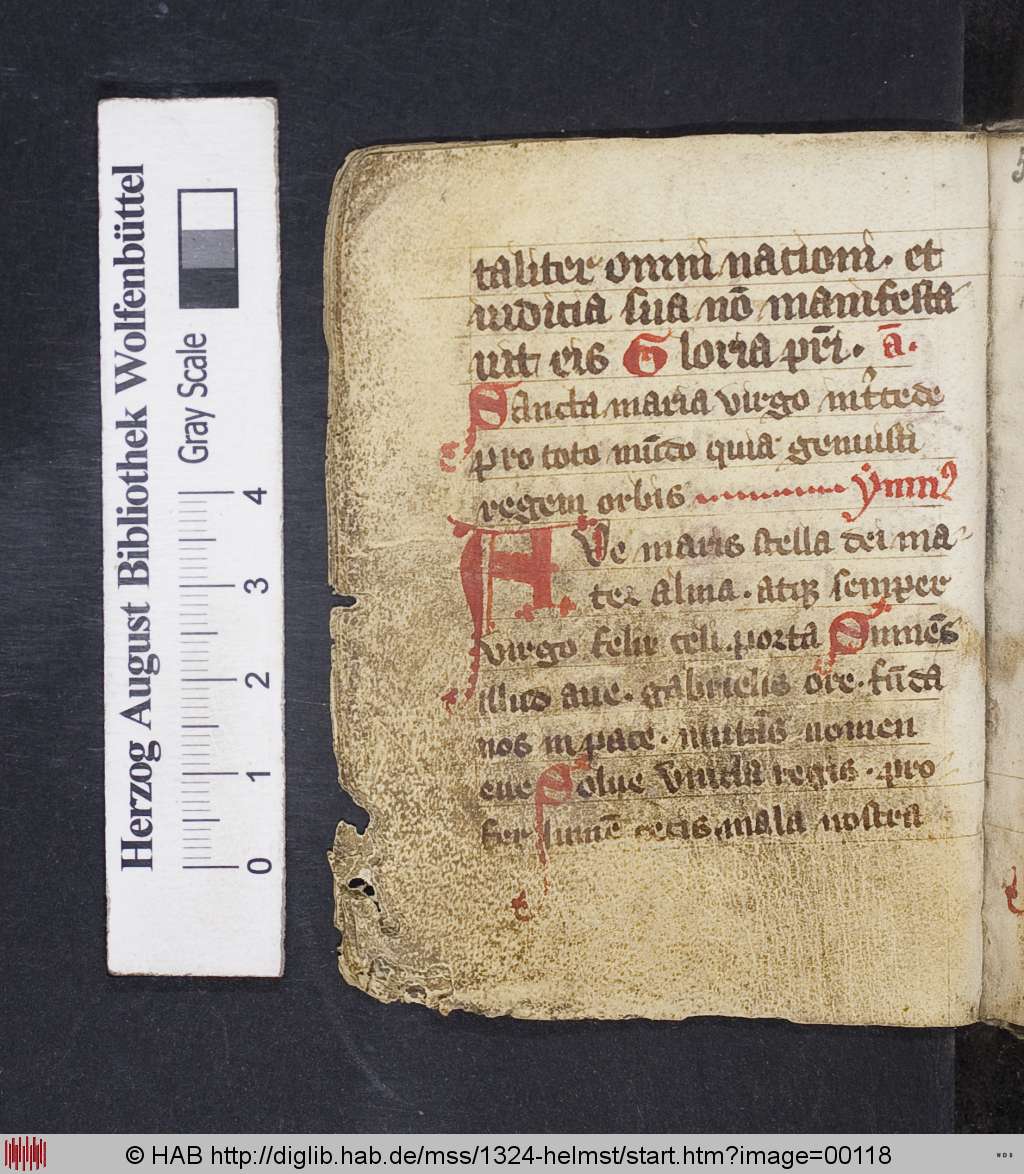 Herzog August Bibliothek Wolfenbüttel
Gray Scale
0 1 2 3 4
5
taliter omni nacioni. et
iudicia sua nō manifesta
uit eis Gloria pr̄i. ā.
Sancta maria virgo int̉cede
pro toto mūdo quia genuisti
regem orbis ẏmnꝰ
AVe maris stella dei ma-
ter alma. atqꝫ semper
virgo felix celi porta Sumēs
illud aue. gabrielis ore. fūda
nos in pace. mutās nomen
eue Solue vincla regis. pro
fer lumē cecis mala nostra
© HAB http://diglib.hab.de/mss/1324-helmst/start.htm?image=00118
WDB